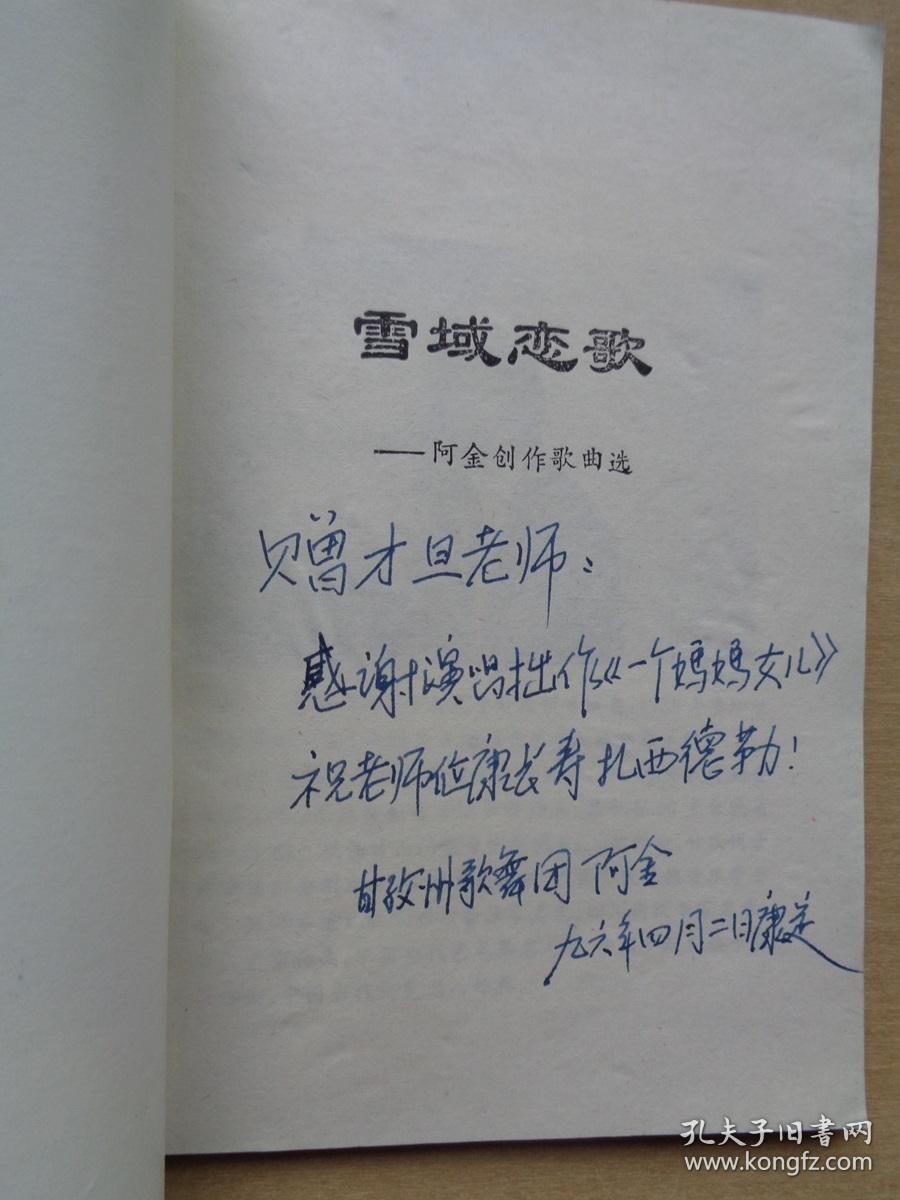 雪域恋歌
——阿金创作歌曲选
赠才旦老师：
感谢演唱拙作《一个妈妈女儿》
祝老师健康长寿扎西德勒！
甘孜州歌舞团 阿金
九六年四月二日康定
孔夫子旧書网
www.kongfz.com